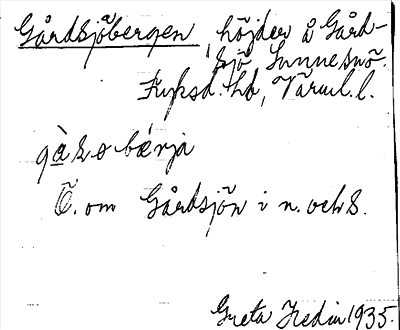 Gårdsjöbergen, höjder å Gård-
sjö, Sunnesmõ.
Fryksd. hd, Värml. l.
gàsø bærja
Ö. om Gårdsjön i n. och S.
Greta Hedin 1935.